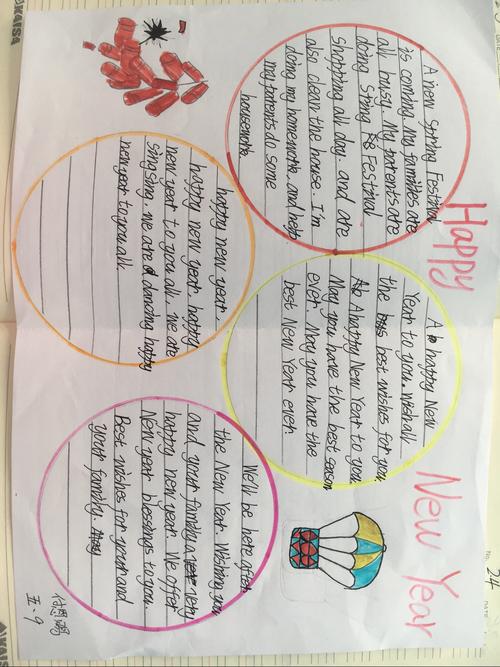 Happy New Year
A new Spring Festival
is coming. My families are
all busy. My parents are
doing String Festival
shopping all day. and are
also clean the house. I'm
doing my homework and help
my parents do some
housework.
A happy New
Year to you. with all
the best wishes for you.
A happy New Year to you
May you have the best season
ever. May you have the
best New Year ever.
happy new year.
happy new year. happy
new year to you all. we are
singsing. we are dancing happy
new year to you all.
We'll be here after
the New Year. Wishing you
and your family a very
happy new year. We offer
New year blessings to you.
Best wishes for you and
your family.
五.9
24